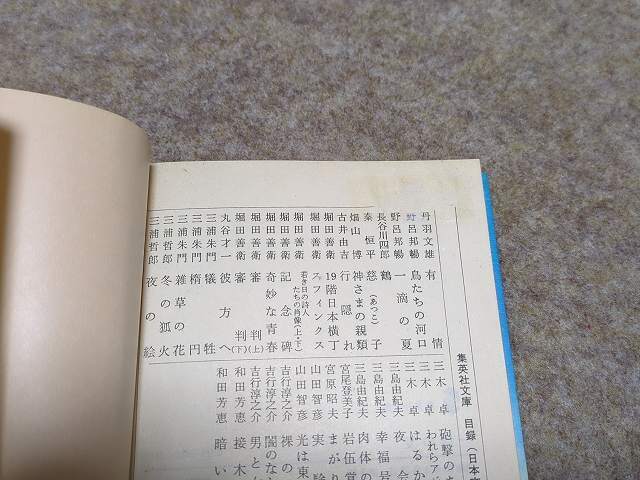 集英社文庫 目録（日本
丹羽文雄 有情
野呂邦暢 鳥たちの河口
野呂邦暢 一滴の夏
長谷川四郎 鶴
秦恒平 慈（あつこ）子
畑山博 神さまの親類
古井由吉 行隠れ
堀田善衛 19階日本横丁
堀田善衛 スフィンクス
堀田善衛 若き日の詩人たちの肖像（上・下）
堀田善衛 記念碑
堀田善衛 奇妙な青春
堀田善衛 審判（上）
堀田善衛 審判（下）
丸谷才一 彼方へ
三浦朱門 犠牲
三浦朱門 楕円
三浦朱門 雑草の花
三浦哲郎 冬の狐火
三浦哲郎 夜の絵
三木卓 砲撃の
三木卓 われらア
三木卓 はるか
三島由紀夫 夜会
三島由紀夫 幸福号
三島由紀夫 肉体の
宮尾登美子 岩伍覚
宮原昭夫 まがり
山田智彦 実
山田智彦 光は東
吉行淳之介 裸の
吉行淳之介 闇のな
吉行淳之介 男と
和田芳恵 接木
和田芳恵 暗い